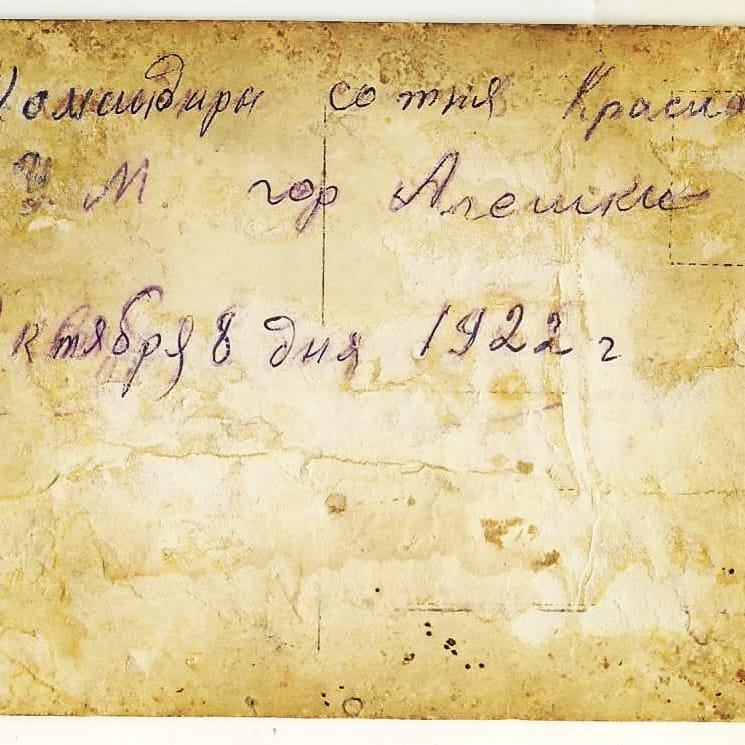 Командиры сотня Красна
М. гор Алешки
Октября 8 дня 1922 г